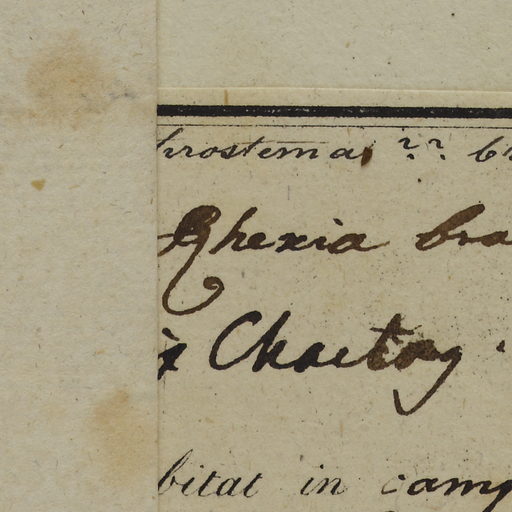 hrostema ?? br
Rhexia bra
Chaetog
bitat in camp